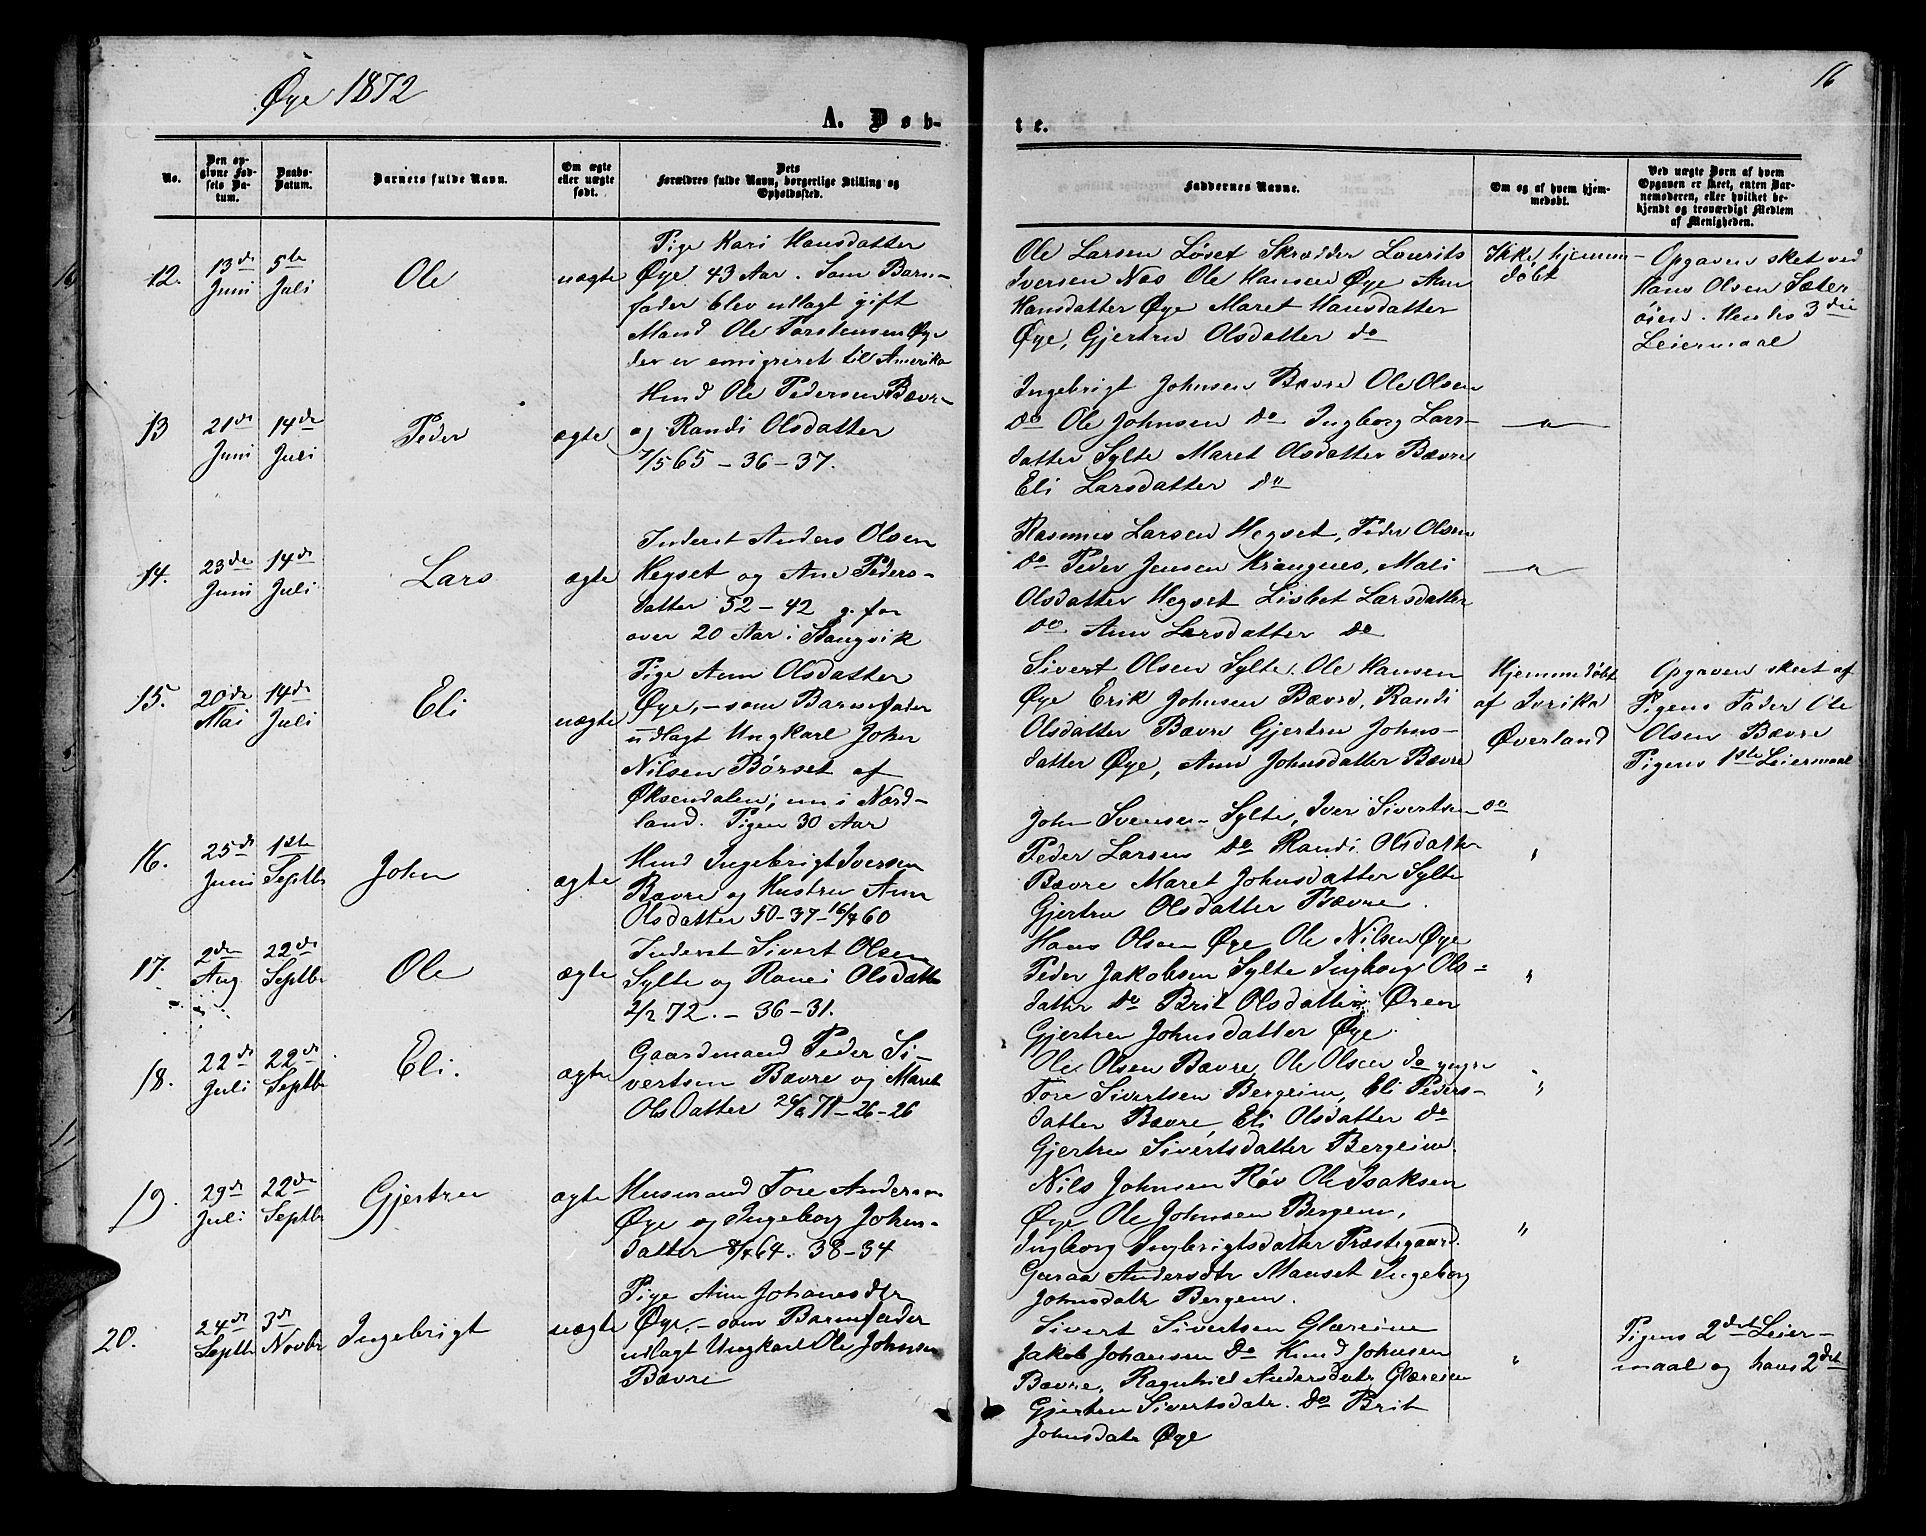 Øye 1872
16
A. Døb-
te.
No.
Den op-
givne Fød-
sels Da-
tum.
Daabs-
Datum.
Barnets fulde Navn.
Om ægte
eller uægte
født.
Dets
Forældres fulde Navn, borgerlige Stilling og
Opholdssted.
Faddernes Navne.
Om og af hvem hjem-
medøbt.
Ved uægte Børn af hvem
Opgaven er skeet, enten Bar-
nemoderen, eller hvilket be-
kjendt og troværdigt Medlem
af Menigheden.
12.
13de
Juni
5te
Juli
Ole
uægte
Pige Kari Hansdatter
Øye 43 Aar. Som Barn-
fader blev udlagt gift
Mand Ole Torstensen Øye
der er emigreret til Amerika
Ole Larsen Løset Skrædder Lourits
Iversen Nos Ole Hansen Øye Ann
Hansdatter Øye Maret Hansdatter
Øye, Gjertru Olsdatter do
Ikke hjemme-
døbt
Opgaven sket ved
Hans Olsen Sæter
øien. Hendes 3die
Leiermaal
13
21de
Juni
14de
Juli
Peder
ægte
Husd Ole Pedersen Bævre
og Randi Olsdatter
7/5 65 - 36 - 37.
Ingebrigt Johnsen Bævre Ole Olsen
do Ole Johnsen do Ingborg Lars-
datter Sylte Maret Olsdatter Bævre
Eli Larsdatter do
— " —
14.
23de
Juni
14de
Juli
Lars
ægte
Inderst Anders Olsen
Hegset og Ane Peders-
datter 52 - 42 g. for
over 20 Aar i Stangvik
Rasmus Larsen Hegset, Peder Olsen
do Peder Jensen Krangnes, Mali
Olsdatter Hegset Lisbet Larsdatter
do Ann Larsdatter do
— " —
15.
20de
Mai
14de
Juli
Eli
uægte
Pige Ann Olsdatter
Øye, - som Barnefader
udlagt Ungkarl John
Nilsen Børset af
Øksendalen; nu i Nord-
land. Pigen 30 Aar
Sivert Olsen Sylte. Ole Hansen
Øye Erik Johnsen Bævre, Randi
Olsdatter Bævre Gjertru Johns-
datter Øye, Ann Johnsdatter Bævre
Hjemmedøbt
af Ivrika
Øverland
Opgaven skeet af
Pigens Fader Ole
Olsen Bævre
Pigens 1ste Leiermaal
16.
25de
Juni
1ste
Septbr
John
ægte
Husd Ingebrigt Iversen
Bævre og Hustru Ann
Olsdatter 50 - 37 - 16/4 60
John Svensen Sylte, Iver Sivertsen do
Peder Larsen do Randi Olsdatter
Bævre Maret Johnsdatter Sylte
Gjertru Olsdatter Bævre.
"
17.
2den
Aug
22de
Septbr
Ole
ægte
Inderst Sivert Olsen
Sylte og Ranei Olsdatte
2/2 72. - 36 - 31.
Hans Olsen Øye Ole Nilsen Øye
Peder Jakobsen Sylte Ingborg Ols-
datter do Brit Olsdatter Øren
Gjertru Johnsdatter Øye.
"
18.
22de
Juli
22de
Septbr
Eli.
ægte
Gaardmand Peder Si-
vertsen Bævre og Maret
Olsdatter 26/6 71 - 26 - 26
Ole Olsen Bævre, Ole Olsen do yngre
Tore Sivertsen Bergeim, Eli Peders-
datter Bævre, Eli Olsdatter do
Gjertru Sivertsdatter Bergeim.
"
19.
29de
Juli
22de
Septbr
Gjertru
ægte
Husmand Tore Andersen
Øye og Ingeborg Johns-
datter 8/4 64. 38 - 34
Nils Johnsen Røv Ole Isaksen
Øye Ole Johnsen Bergem,
Ingborg Ingbrigtsdatter Præstegaard.
Guraa Andersdtr Mauset Ingeborg
Johnsdatr Bergem.
"
20.
24de
Septbr
3de
Novbr
Ingebrigt
uægte
Pige Ann Johanesdtr
Øye, - som Barnefader
udlagt Ungkarl Ole Johnsen
Bævre
Sivert Sivertsen Glæreim
Jakob Johansen do Knud Johnsen
Bævre, Ragnhild Andersdatr Glæreim
Gjertru Sivertsdatr. do Brit
Johnsdatr Øye
"
Pigens 2det Leier-
maal og hans 2det